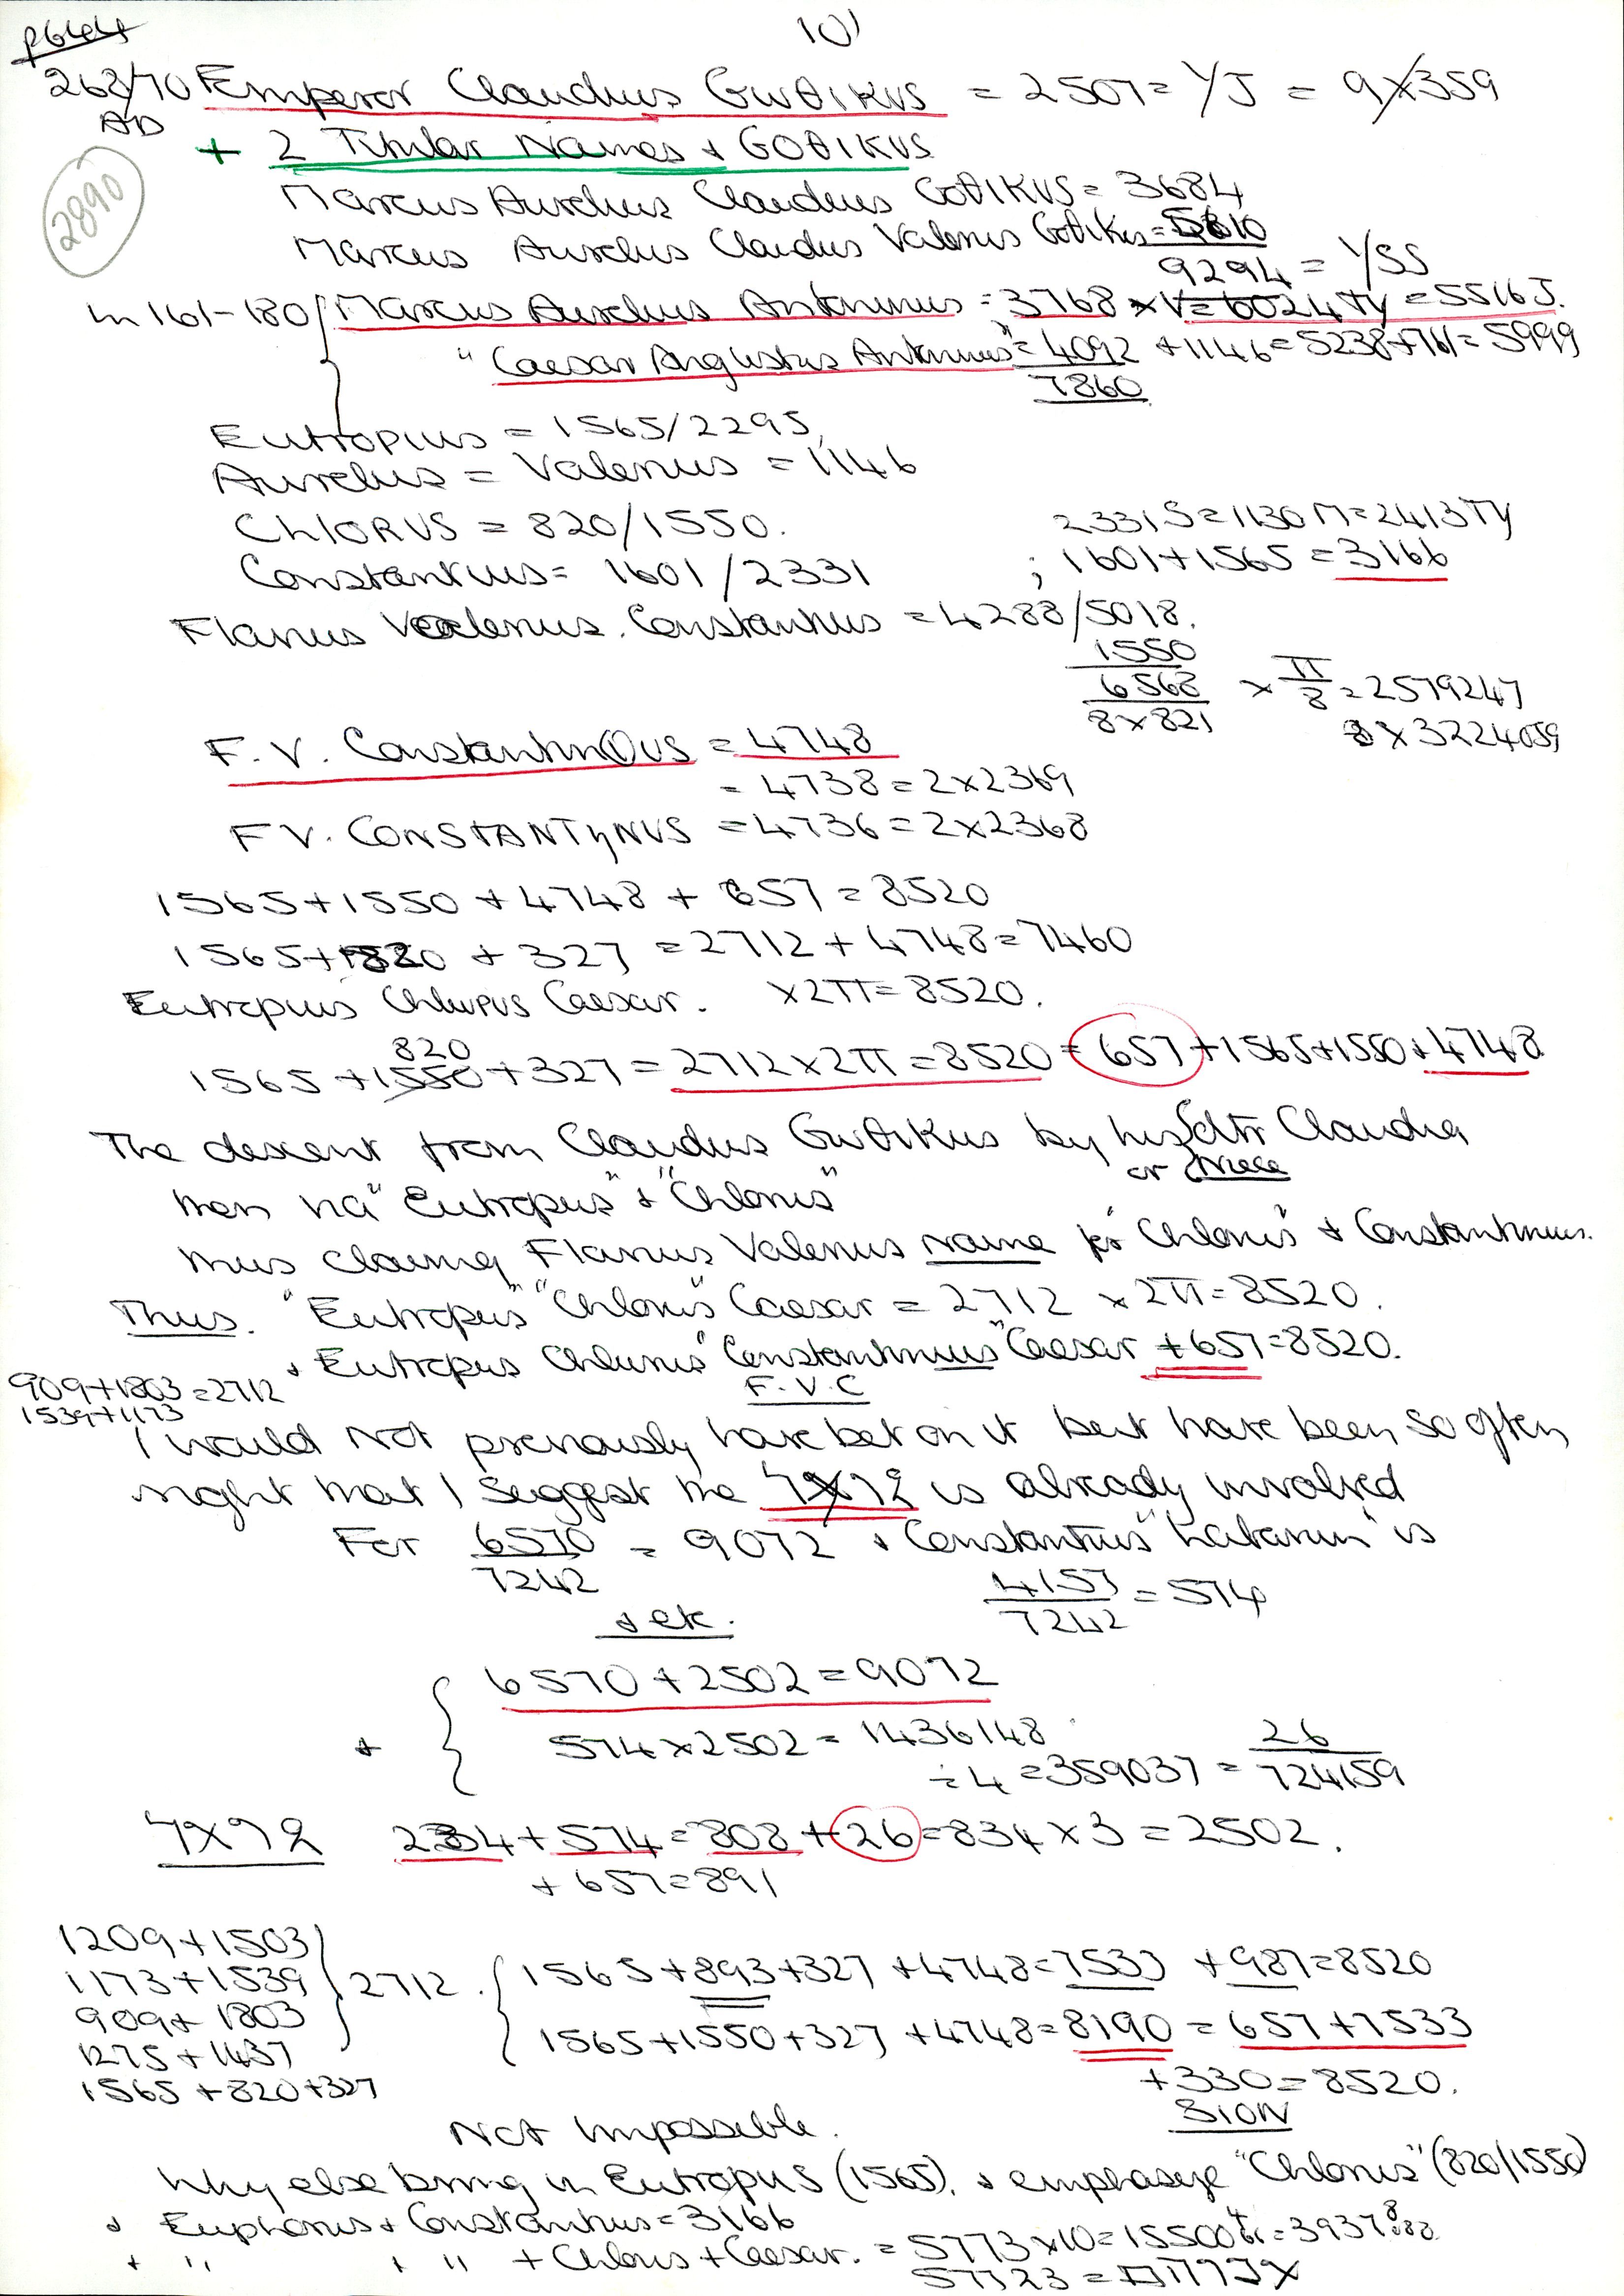 P644
101
268/70 Emperor Claudius GWΘIKUS = 2507 = Y/J = 9X359
AD
+ 2 Titular Names + GOΘIKUS
2890
Marcus Aurelius Claudius GOΘIKUS = 3684
Marcus Aurelius Claudius Valerius GoΘikus = 5610
9294 = YSS
In 161-180 Marcus Aurelius Antoninus = 3768 x V = 6024 TY = 5516 J.
" Caesar Augustus Antoninus" = 4092 + 1146 = 5238 + 761 = 5999
7860
Eutropius = 1565/2295,
Aurelius = Valerius = 1146
ChlORUS = 820/1550.
2331 S = 1130 M = 2413 TY
Constantius = 1601/2331 ; 1601+1565 = 3166
Flavius Valerius. Constantius = 4288/5018.
1550
6568 x π/8 = 2579247
8x821
8x3224059
F. V. ConstantinOUS = 4748
= 4738 = 2x2369
F V. CONSTANTηNUS = 4736 = 2x2368
1565+1550 + 4748 + 657 = 8520
1565+820 + 327 = 2712 + 4748 = 7460
Eutropius Chlorus Caesar. x2π = 8520.
820
1565 + 1550 + 327 = 2712 x 2π = 8520 = 657 + 1565 + 1550 + 4748
The descent from Claudius GwΘiKus by his dtr Claudia
or Niece
then via "Eutropus" + "Chlorus"
thus claiming Flavius Valerius Name for "Chlorus" + Constantinus.
Thus. "Eutropus" "Chlorus" Caesar = 2712 x 2π = 8520.
+ Eutropus Chlorus "Constantinus" Caesar + 657 = 8520.
F.V.C
909+1803 = 2712
1539+1173
I would not previously have bet on it but have been so often
right that I suggest the is already involved
For 6570 = 9072 + Constantius "Labarum" is
7242
4157 = 574
7242
+ etc.
6570 + 2502 = 9072
+ 574 x 2502 = 1436148
÷ 4 = 359037 = 26
724159
234 + 574 = 808 + 26 = 834 x 3 = 2502.
+ 657 = 891
1209+1503
1173+1539
909+1803
1275+1437
1565+820+327
2712.
1565+893+327 + 4748 = 7533 + 987 = 8520
1565+1550+327 + 4748 = 8190 = 657 + 7533
+330 = 8520.
SION
Not Impossible.
Why else bring in Eutropus (1565), + emphasize "Chlorus" (820/1550)
+ Euphorus + Constantius = 3166
+ " + " + Chlorus + Caesar. = 5773 x 10 = 15500 = 3937
57723 =